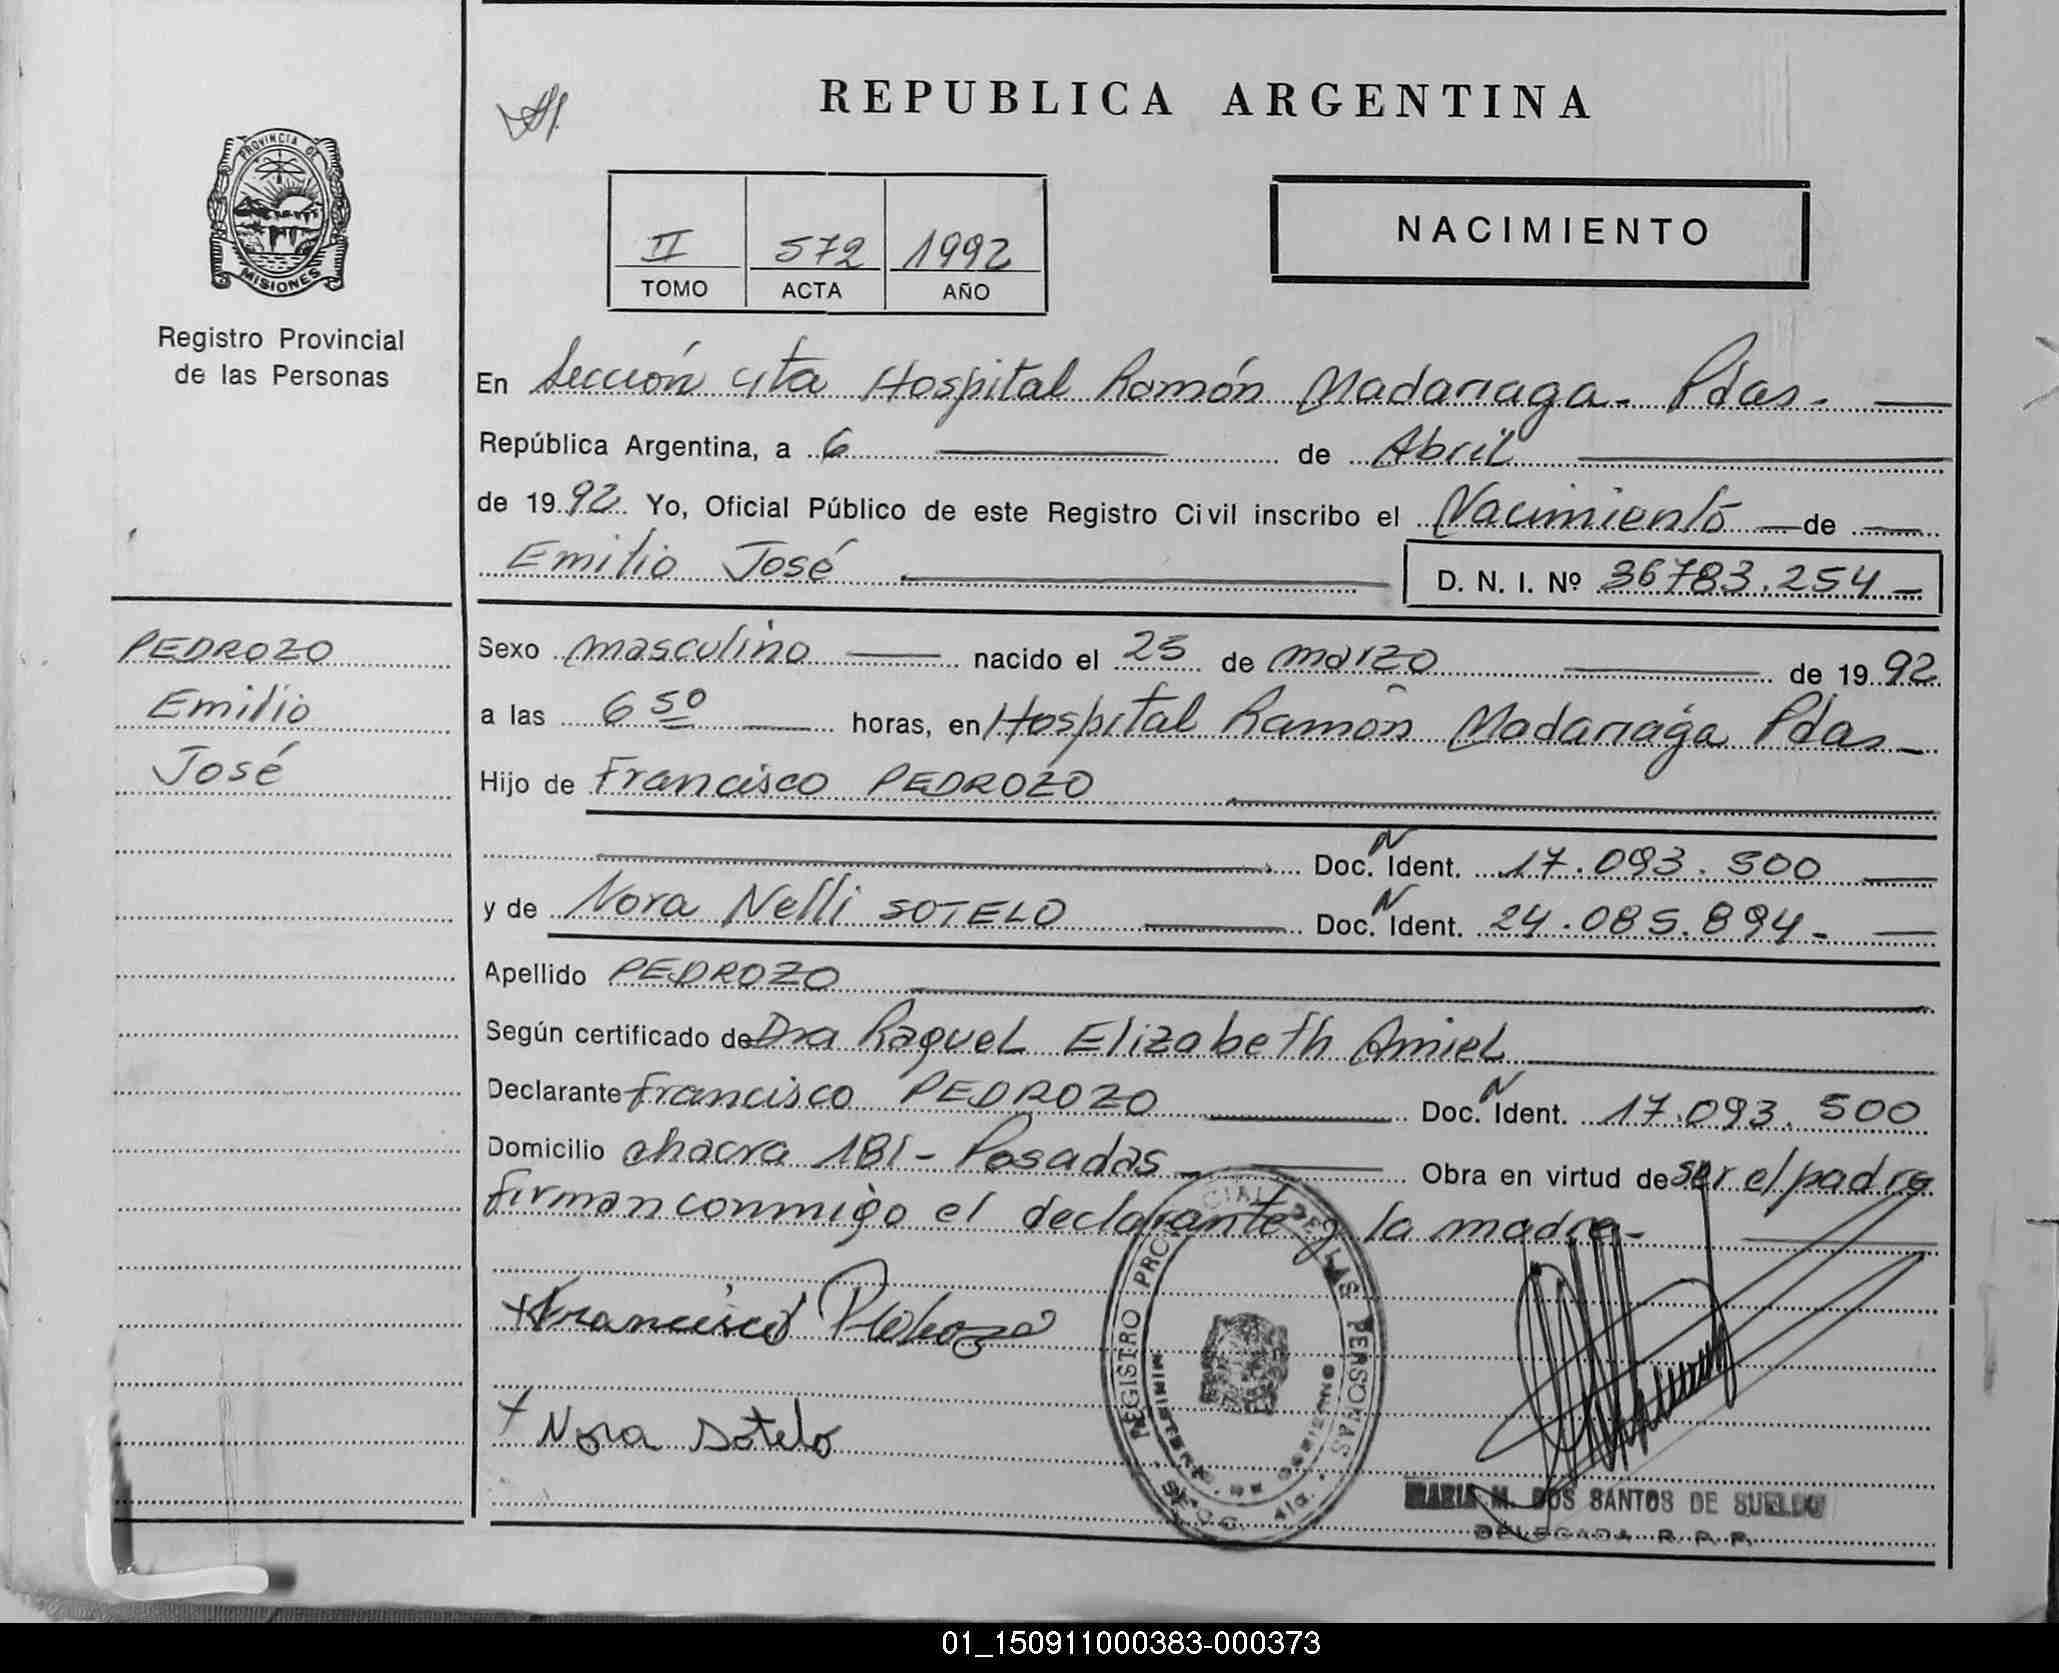 REPUBLICA ARGENTINA
PROVINCIA DE
MISIONES
Registro Provincial
de las Personas
II 572 1992
TOMO ACTA AÑO
NACIMIENTO
En Sección 4ta Hospital Ramón Madariaga - Pdas -
República Argentina, a 6 de Abril
de 1992 Yo, Oficial Público de este Registro Civil inscribo el Nacimiento de
Emilio José D. N. I. Nº 36783.254 -
PEDROZO
Emilio
José
Sexo masculino nacido el 25 de marzo de 1992
a las 6 50 horas, en Hospital Ramón Madariaga Pdas -
Hijo de Francisco PEDROZO
Doc. N Ident. 17.093.500
y de Nora Nelli SOTELO Doc. N Ident. 24.085.894 -
Apellido PEDROZO
Según certificado de Dra Raquel Elizabeth Amiel
Declarante Francisco PEDROZO Doc. N Ident. 17.093.500
Domicilio chacra 181 - Posadas - Obra en virtud de ser el padre
firman conmigo el declarante y la madre -
Francisco Pedrozo
Nora Sotelo
REGISTRO PROVINCIAL DE LAS PERSONAS
MINISTERIO DE GOBIERNO
SECC. 4ta.
MARIA M. DOS SANTOS DE SUELDO
DELEGADA R. P. P.
01_150911000383-000373